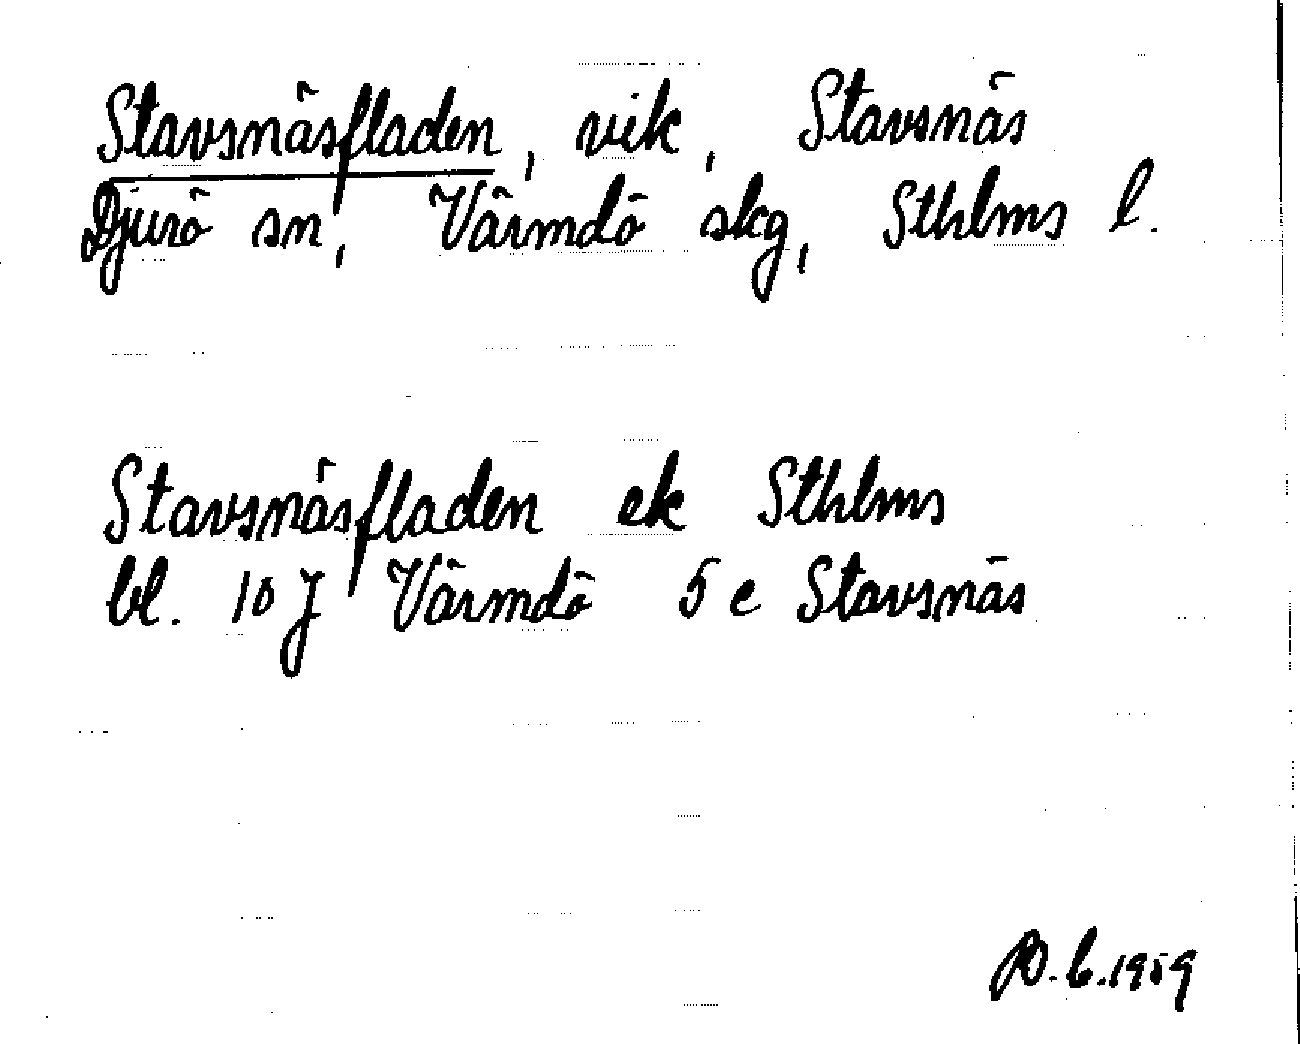 Stavsnäsfladen, vik, Stavsnäs
Djurö sn, Värmdö skg, Sthlms l.
Stavsnäsfladen ek Sthlms
bl. 10 J Värmdö 5 e Stavsnäs
1959